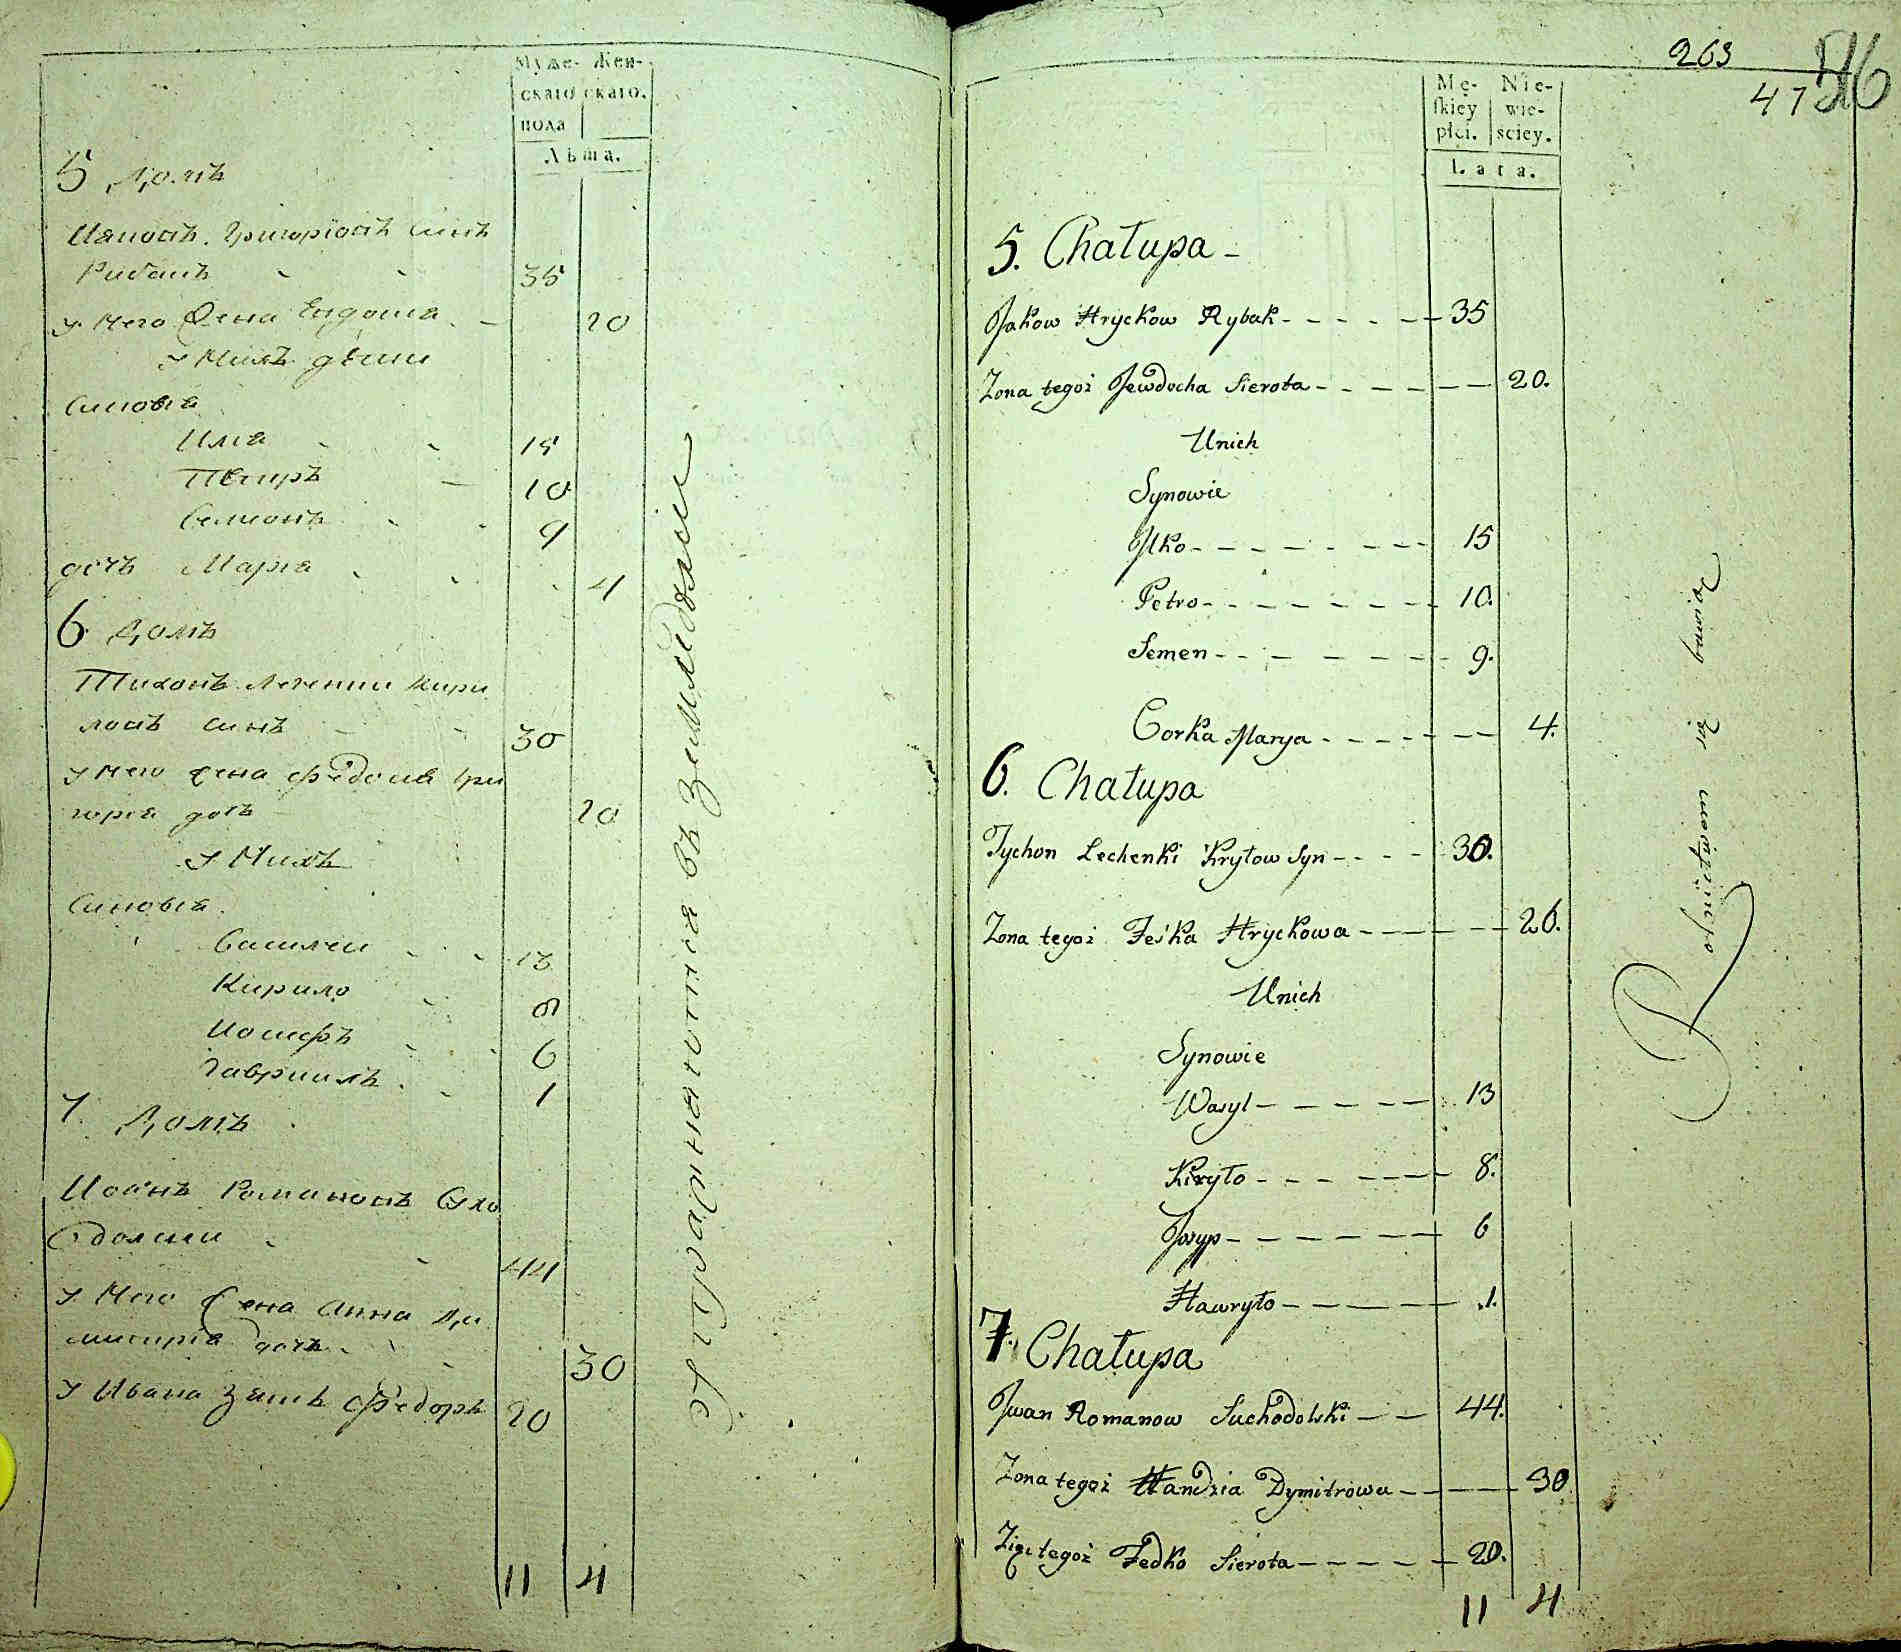 Муже-
скаго
пола
Жен-
скаго.
Лѣта.
5 Домъ
Иаковъ Григоріовъ синъ
Рибакъ 35
У Него Жена Евдокиа 20
У Нихъ дѣти
Синовья
Илья 15
Петръ 10
Семионъ 9
дочъ Мария 4
6 Домъ
Тихонъ Леченки Кири
ловъ синъ 30
У Него Жена Федосиа Гри
гориа дочъ 20
У Нихъ
Синовья
Василеи 13
Кирило 8
Иосифъ 6
Гаврииль 1
7. Домъ
Иоанъ Романовъ Сухо
долски 44
У Него Жена Анна Ди
митриа дочъ 30
У Ивана Зять Федоръ 20
11 4
Упражняются въ земледѣлии
263
47
Mę-
skiey
płci.
Nie-
wie-
sciey.
Lata.
5. Chałupa -
Jakow Hryckow Rybak - - - - - 35
Zona tegoż Jewdocha Sierota - - - - - - 20.
Unich
Synowie
Ilko - - - - - - - - 15
Petro - - - - - - - 10.
Semen - - - - - - - 9.
Corka Marya - - - - - - - 4.
6. Chałupa
Tychon Lechenki Kryłow Syn - - - - 30.
Zona tegoż Feśka Hryckowa - - - - - 26.
Unich
Synowie
Wasyl - - - - - - 13
Kiryło - - - - - - 8.
Josyp - - - - - - 6
Hawryło - - - - - - 1.
7. Chałupa
Jwan Romanow Suchodolski - - 44.
Zona tegoż Handzia Dymitrowa - - - - 30
Zięc tegoż Fedko Sierota - - - - - 20.
11 4